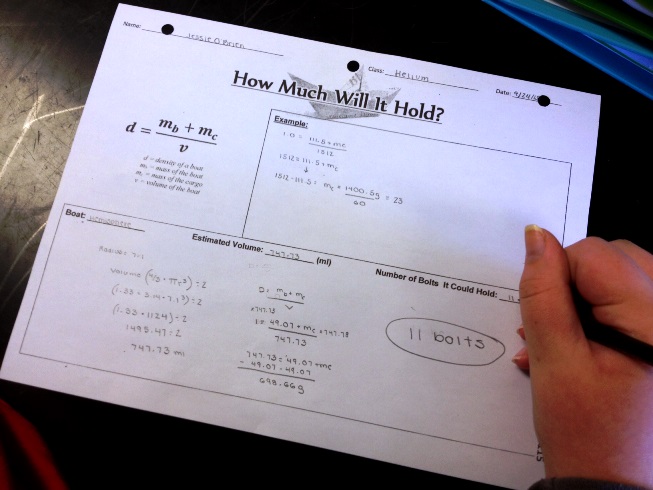 Name: Jessie O'Brien
Class: Helium
Date: 9/24/
How Much Will It Hold?
d = mb + mc
v
d = density of a boat
mb = mass of the boat
mc = mass of the cargo
v = volume of the boat
Example:
1.0 = 111.5 + mc
1512
1512 = 111.5 + mc
↓
1512 - 111.5 = mc
1400.5g = 23
60
Boat: Hemisphere
Estimated Volume: 747.73 (ml)
Number of Bolts It Could Hold: 11
Radius: 7.1
Volume (4/3 · πr³) ÷ 2
(1.33 · 3.14 · 7.1³) ÷ 2
(1.33 · 1124) ÷ 2
1495.47 ÷ 2
747.73 ml
D = mb + mc
v
×747.73
1 = 49.07 + mc ×747.73
747.73
747.73 = 49.07 + mc
- 49.07 - 49.07
698.66g
11 bolts